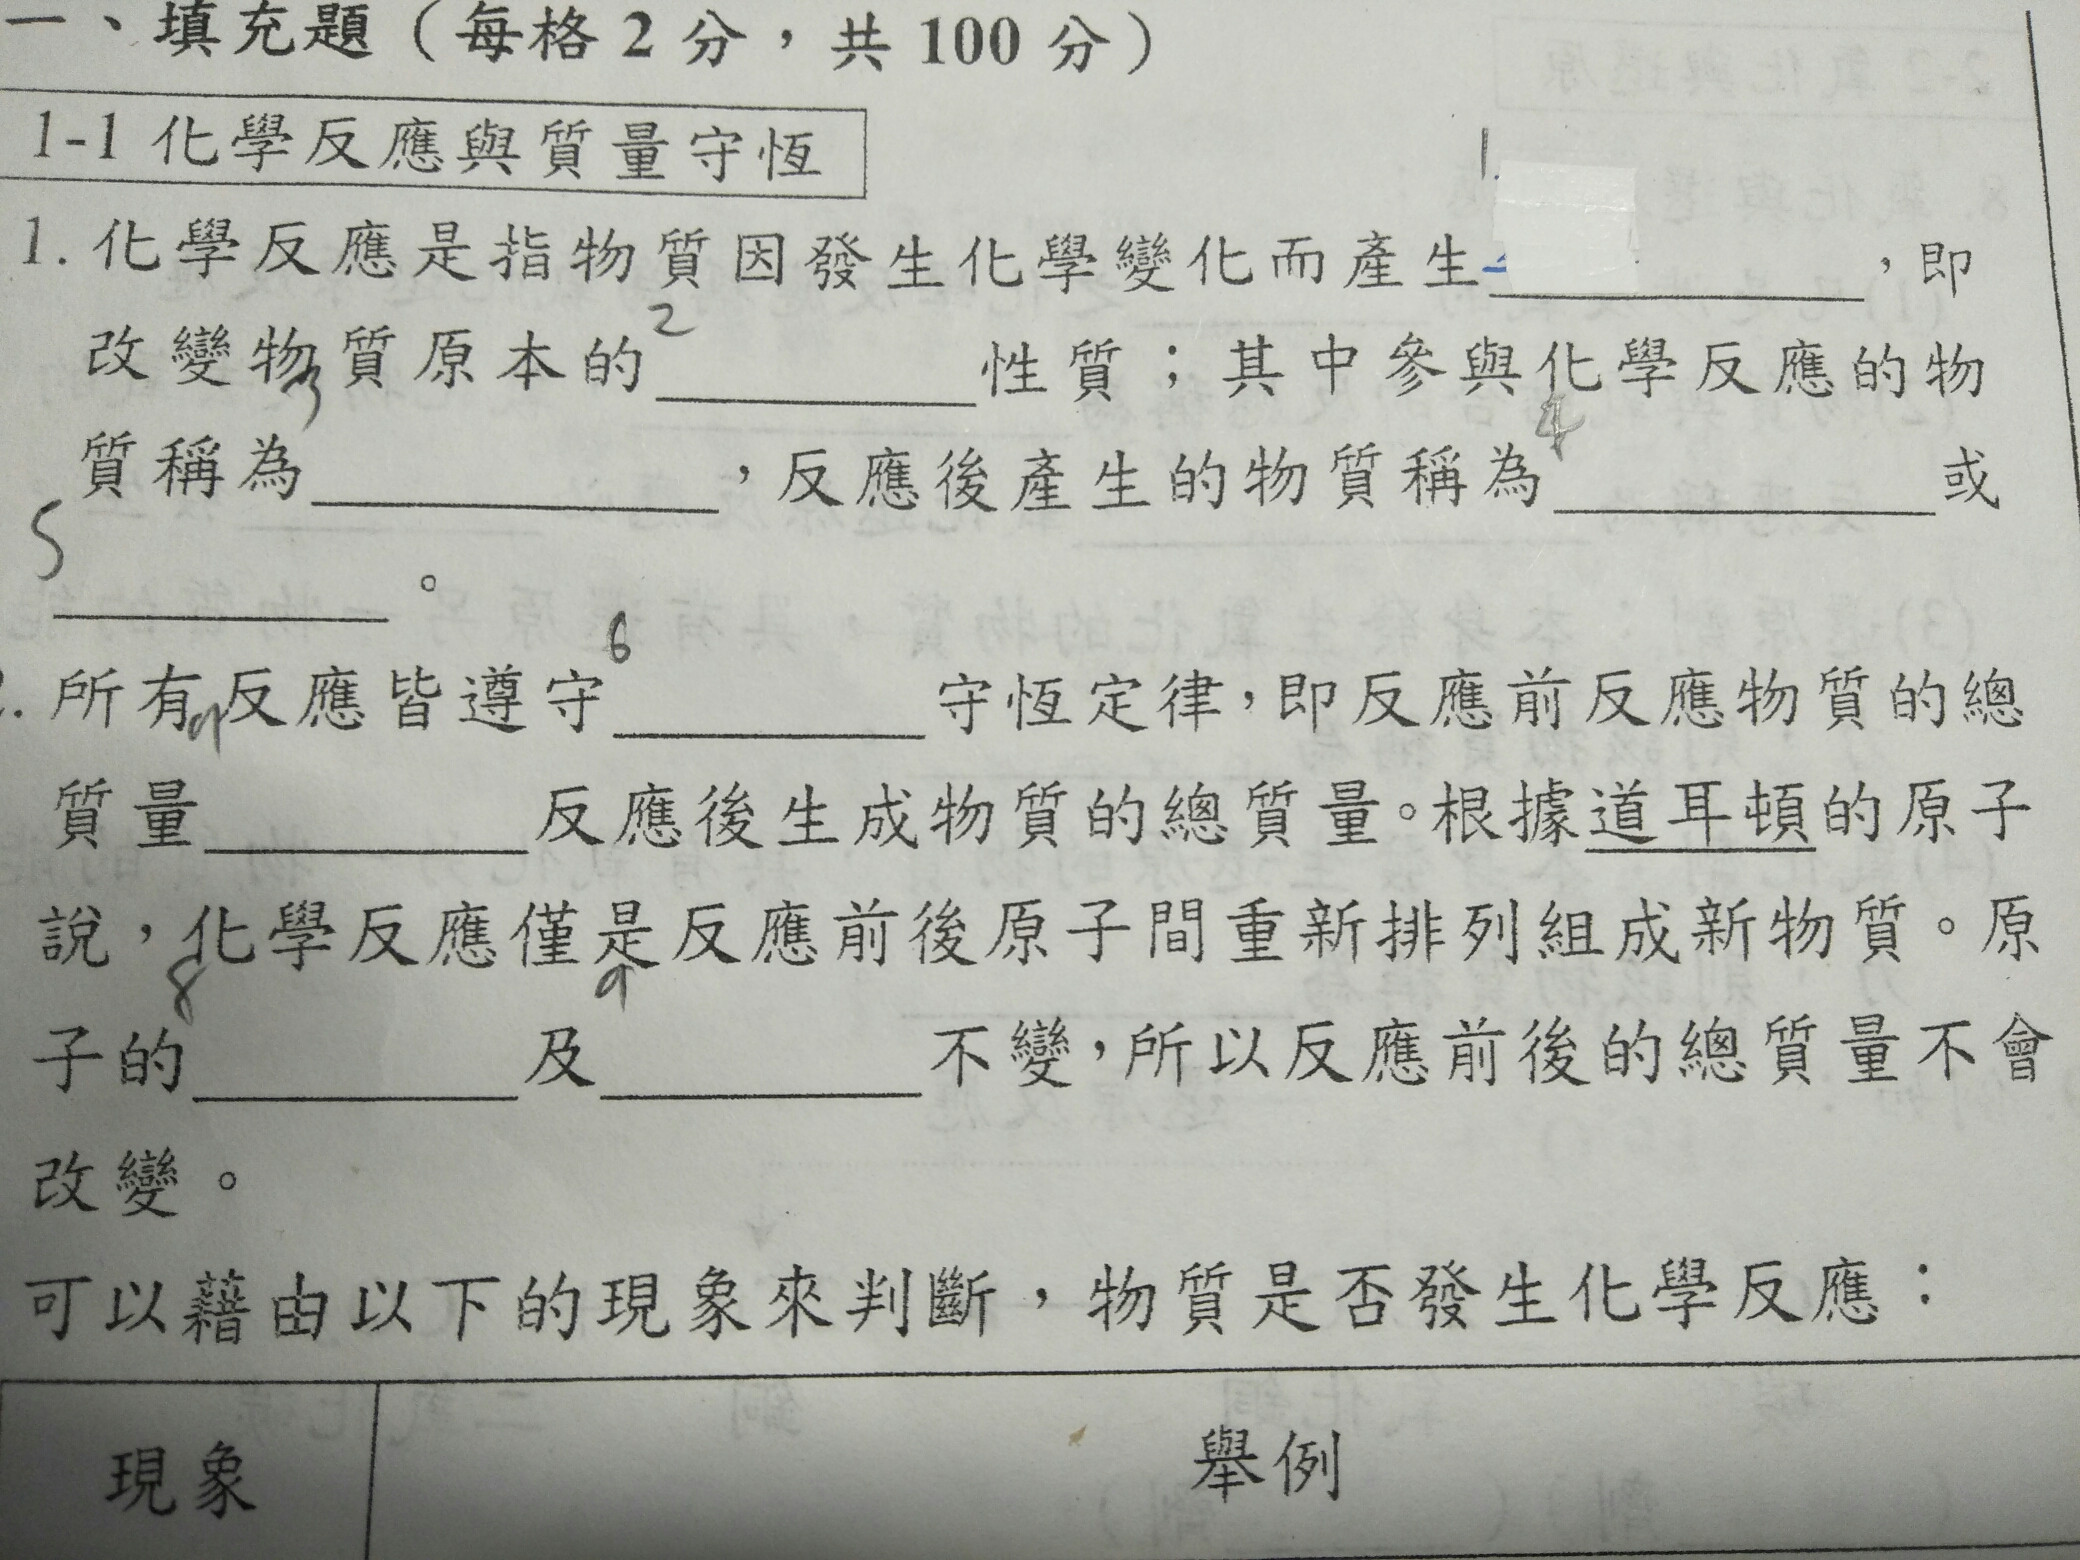 一、填充題（每格2分，共100分）
1-1 化學反應與質量守恆
1.
1. 化學反應是指物質因發生化學變化而產生＿＿＿＿，即
2
改變物質原本的＿＿＿＿性質；其中參與化學反應的物
3 4
質稱為＿＿＿＿，反應後產生的物質稱為＿＿＿＿或
5
＿＿＿＿。
6
. 所有反應皆遵守＿＿＿＿守恆定律，即反應前反應物質的總
質量＿＿＿＿反應後生成物質的總質量。根據道耳頓的原子
說，化學反應僅是反應前後原子間重新排列組成新物質。原
8 9
子的＿＿＿＿及＿＿＿＿不變，所以反應前後的總質量不會
改變。
可以藉由以下的現象來判斷，物質是否發生化學反應：
現象 舉例